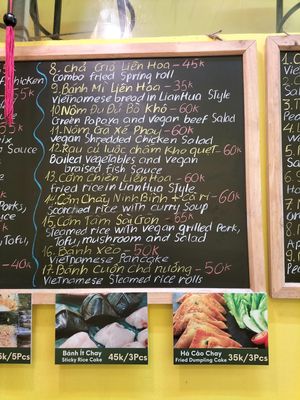 8. Chả Giò Liên Hoa - 45K
Combo fried Spring roll
9. Bánh Mì Liên Hoa - 35K
Vietnamese bread in LianHua STyle
10. Nộm Đu Đủ Bò Khô - 60K
Green Papaya and vegan beef Salad
11. Nộm Gà Xé Phay - 60K
vegan Shredded Chicken Salad
12. Rau củ luộc chấm kho quẹt - 60K
Boiled vegetables and vegan
braised fish Sauce
13. Cơm Chiên Liên Hoa - 60K
fried rice in LianHua STyle
14. Cơm Cháy Ninh Bình + Cà ri - 60K
Scorched rice with curry Soup
15. Cơm Tấm Sài Gòn - 65K
STeamed rice with vegan grilled Pork,
Tofu, mushroom and Salad
16. Bánh Xèo - 50K
Vietnamese Pancake
17. Bánh Cuốn Chả nướng - 50K
Vietnamese Steamed rice rolls
chicken
55K
Sauce
Porks,
Tofu,
- 40K
5K/5Pcs
Bánh Ít Chay
Sticky Rice Cake
45k/3Pcs
Há Cảo Chay
Fried Dumpling Cake
35k/3Pcs